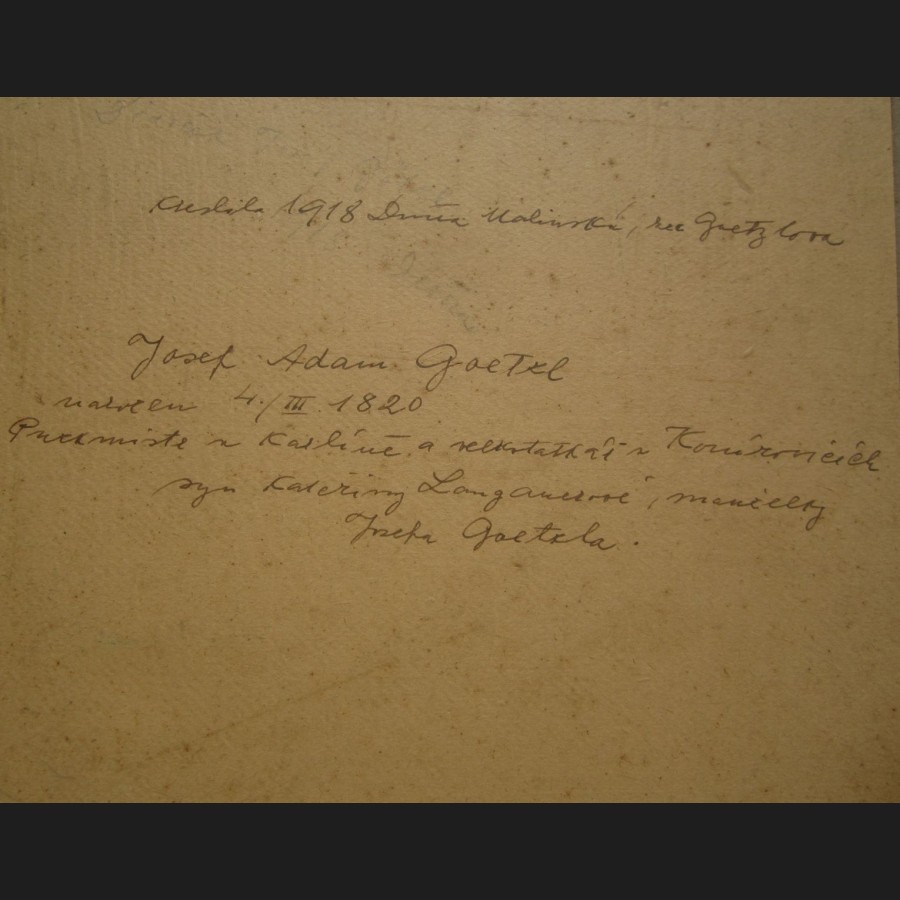 Kreslila 1918 Druža Malinská, roz Goetzlova
Josef Adam Goetzl
narozen 4./III. 1820
Purkmistr v Karlíně a velkostatkář v Komřovicích
syn Kateřiny Langauerové, manželky
Josefa Goetzla.